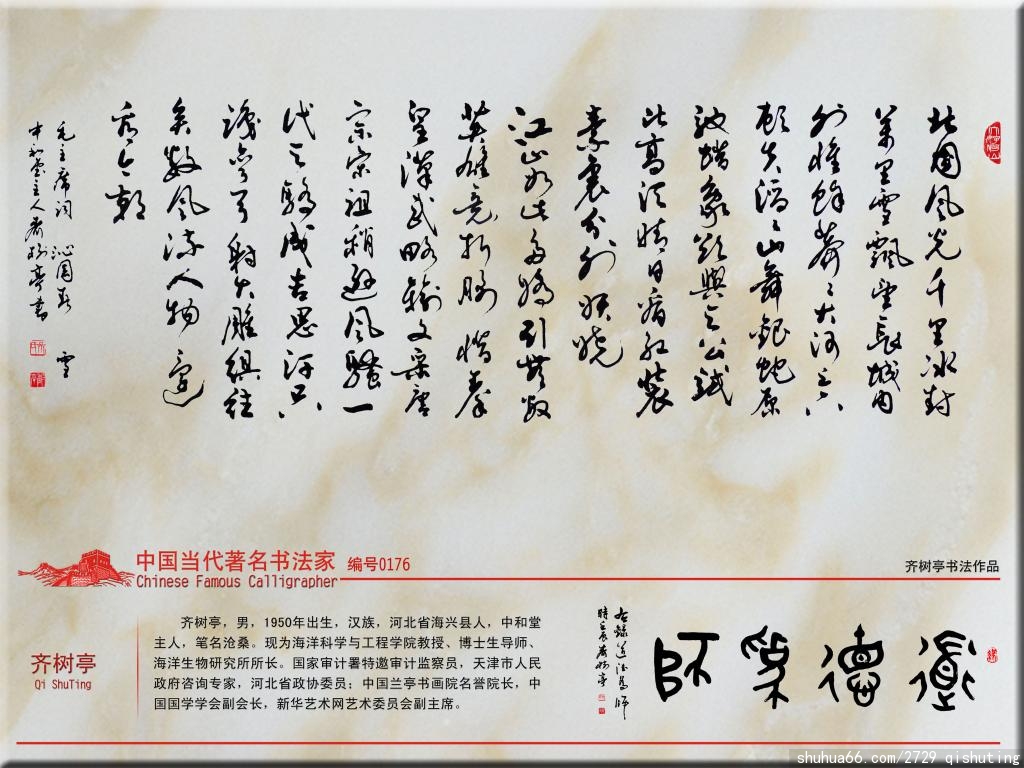 北國風光千里冰封
萬里雪飄望長城內
外惟餘莽〻大河上下
頓失滔〻山舞銀蛇原
馳蠟象欲與天公試
比高須晴日看紅裝
素裹分外妖嬈
江山如此多嬌引無數
英雄競折腰惜秦
皇漢武略輸文采唐
宗宋祖稍遜風騷一
代天驕成吉思汗只
識彎弓射大雕俱往
矣數風流人物還
看今朝
毛主席詞 沁園春 雪
中和堂主人齊樹亭書
中国当代著名书法家 编号0176
Chinese Famous Calligrapher
齐树亭书法作品
齐树亭
Qi ShuTing
齐树亭，男，1950年出生，汉族，河北省海兴县人，中和堂
主人，笔名沧桑。现为海洋科学与工程学院教授、博士生导师、
海洋生物研究所所长。国家审计署特邀审计监察员，天津市人民
政府咨询专家，河北省政协委员；中国兰亭书画院名誉院长，中
国国学学会副会长，新华艺术网艺术委员会副主席。
道德為師
右錄道德為師
時壬辰齊樹亭
shuhua66.com/2729 qishuting